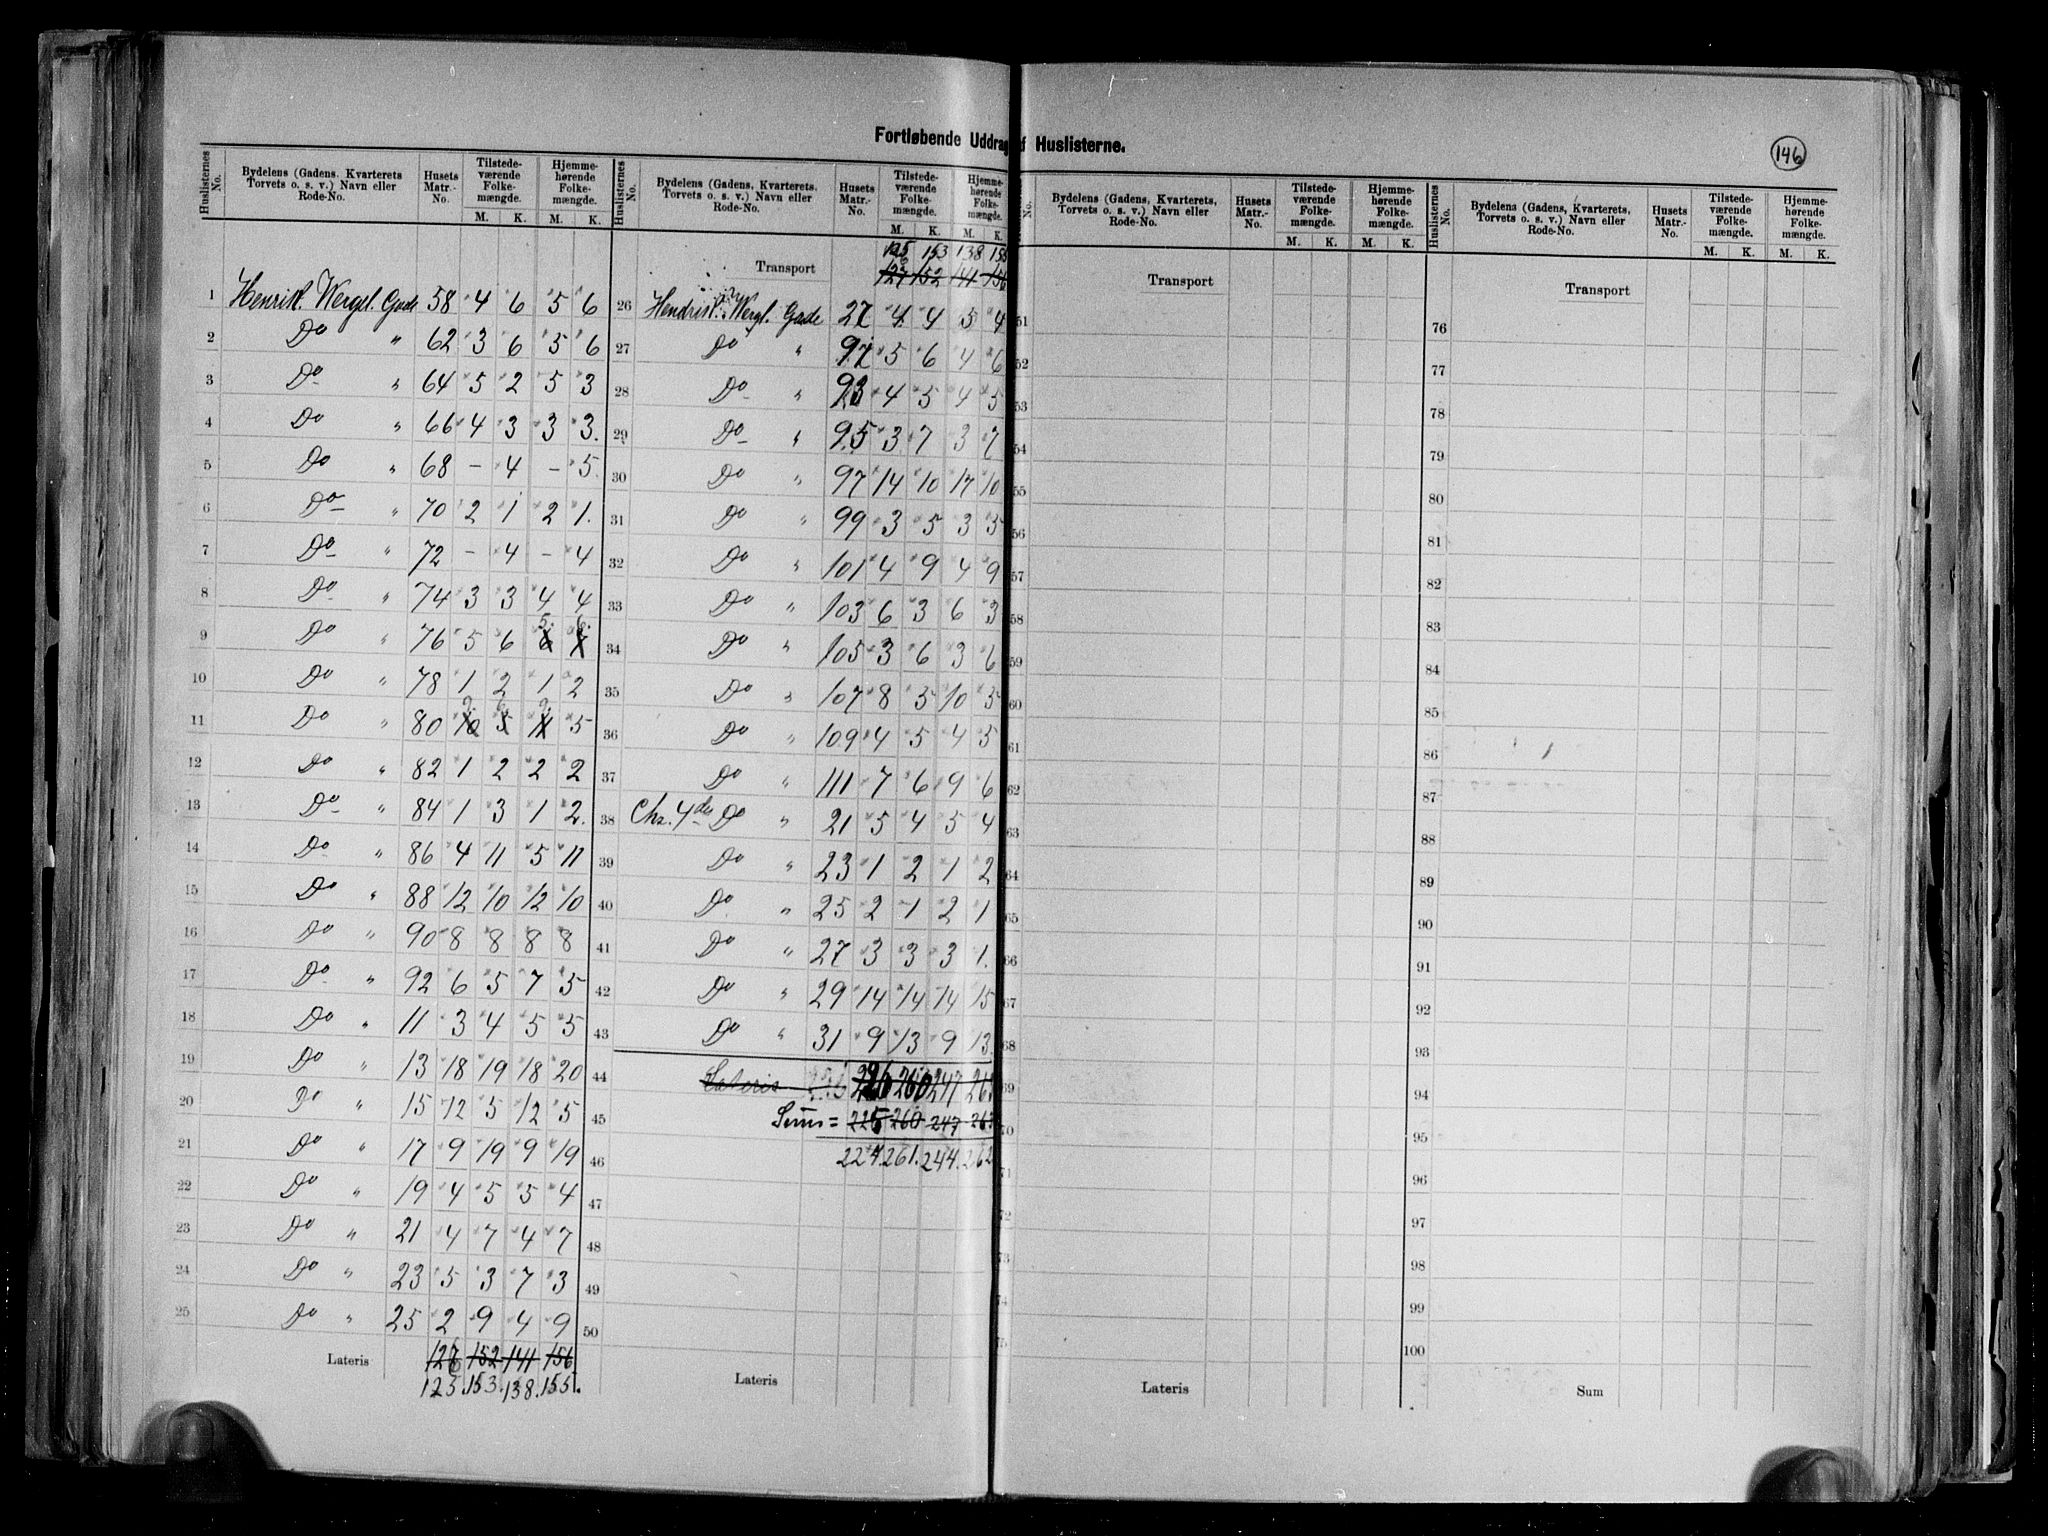 Fortløbende Uddrag af Huslisterne.
146
Huslisternes No. Bydelens (Gadens, Kvarterets Torvets o. s. v.) Navn eller Rode-No. Husets Matr.-No. Tilstede-værende Folke-mængde. M. K. Hjemme-hørende Folke-mængde. M. K.
1 Henrik Wergel. Gade 58 4 6 5 6
2 Do " 62 3 6 5 6
3 Do " 64 5 2 5 3
4 Do " 66 4 3 3 3.
5 Do " 68 - 4 - 5.
6 Do " 70 2 1 2 1.
7 Do " 72 - 4 - 4
8 Do " 74 3 3 4 4
9 Do " 76 5 6 5. 6.
10 Do " 78 1 2 1 2
11 Do " 80 9. 6. 9. 5
12 Do " 82 1 2 2 2
13 Do " 84 1 3 1 2.
14 Do " 86 4 11 5 11
15 Do " 88 12 10 12 10
16 Do " 90 8 8 8 8
17 Do " 92 6 5 7 5
18 Do " 11 3 4 5 5
19 Do " 13 18 19 18 20
20 Do " 15 12 5 12 5
21 Do " 17 9 19 9 19
22 Do " 19 4 5 5 4
23 Do " 21 4 7 4 7
24 Do " 23 5 3 7 3
25 Do " 25 2 9 4 9
Lateris 152 141 156
125 153. 138. 155.
Huslisternes No. Bydelens (Gadens, Kvarterets, Torvets o. s. v.) Navn eller Rode-No. Husets Matr.-No. Tilstede-værende Folke-mængde. M. K. Hjemme-hørende Folke-mængde. M. K.
125 153 138
Transport 127 152 141 156
26 Hendrik Wergl. Gade 27 4 4 5 4
27 Do " 91 5 6 4 6
28 Do " 93 4 5 4 5
29 Do " 95 3 7 3 7
30 Do " 97 14 10 17 10
31 Do " 99 3 5 3 5
32 Do " 101 4 9 4 9
33 Do " 103 6 3 6 3
34 Do " 105 3 6 3 6
35 Do " 107 8 5 10 5
36 Do " 109 4 5 4 5
37 Do " 111 7 6 9 6
38 Chr. 4des Do " 21 5 4 5 4
39 Do " 23 1 2 1 2
40 Do " 25 2 1 2 1
41 Do " 27 3 3 3 1.
42 Do " 29 14 14 14 15
43 Do " 31 9 13 9 13.
44 Lateris 260 247
45 Sum = 225 260 247
46 224. 261. 244. 262
47
48
49
50
Lateris
Bydelens (Gadens, Kvarterets, Torvets o. s. v.) Navn eller Rode-No. Husets Matr.-No. Tilstede-værende Folke-mængde. M. K. Hjemme-hørende Folke-mængde. M. K.
Transport
51
52
53
54
55
56
57
58
59
60
61
62
63
64
65
66
67
68
69
70
71
72
73
74
75
Lateris
Huslisternes No. Bydelens (Gadens, Kvarterets, Torvets o. s. v.) Navn eller Rode-No. Husets Matr.-No. Tilstede-værende Folke-mængde. M. K. Hjemme-hørende Folke-mængde. M. K.
Transport
76
77
78
79
80
81
82
83
84
85
86
87
88
89
90
91
92
93
94
95
96
97
98
99
100
Sum